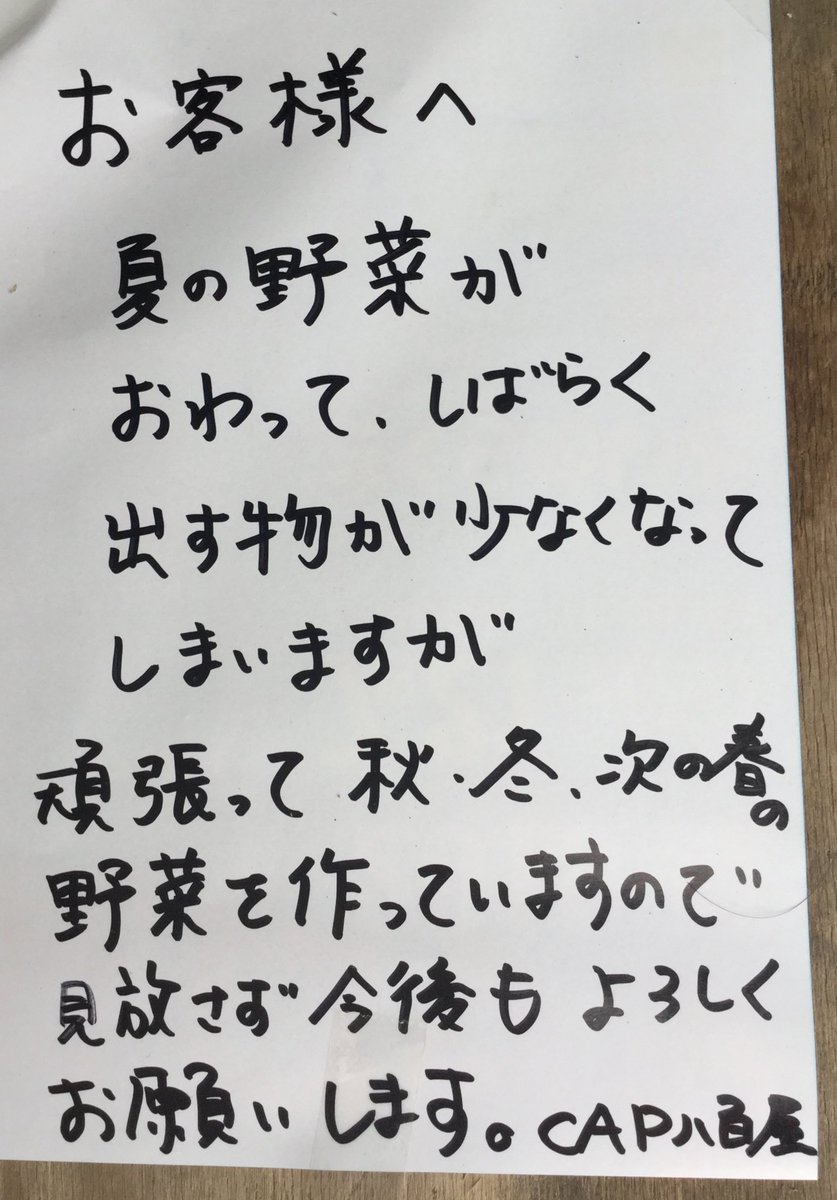 お客様へ
夏の野菜が
おわって、しばらく
出す物が少なくなって
しまいますが
頑張って秋・冬、次の春の
野菜を作っていますので
見放さず今後もよろしく
お願いします。CAP八百屋